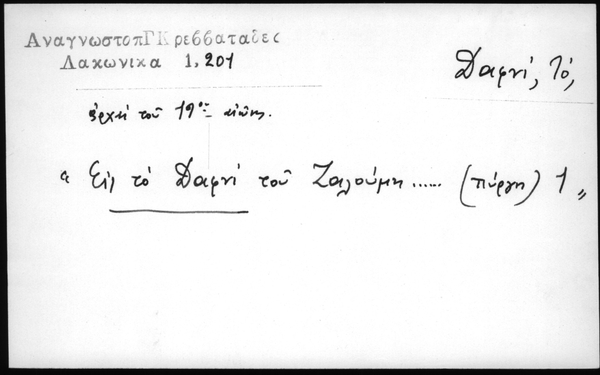 ΑναγνωστοπΓΚρεββαταδες
Λακωνικα 1,201
Δαφνί, Τό,
ἀρχαί τοῦ 19ου αἰῶνος.
« Εἰς τό Δαφνί τοῦ Ζαλούμη...... (πύργη) 1 „